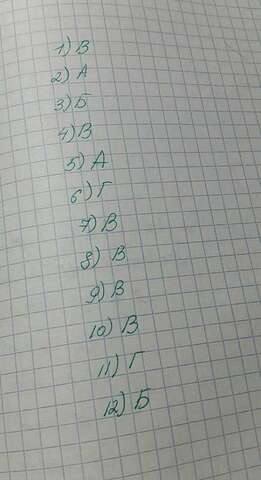 1) В
2) А
3) Б
4) В
5) А
6) Г
7) В
8) В
9) В
10) В
11) Г
12) Б